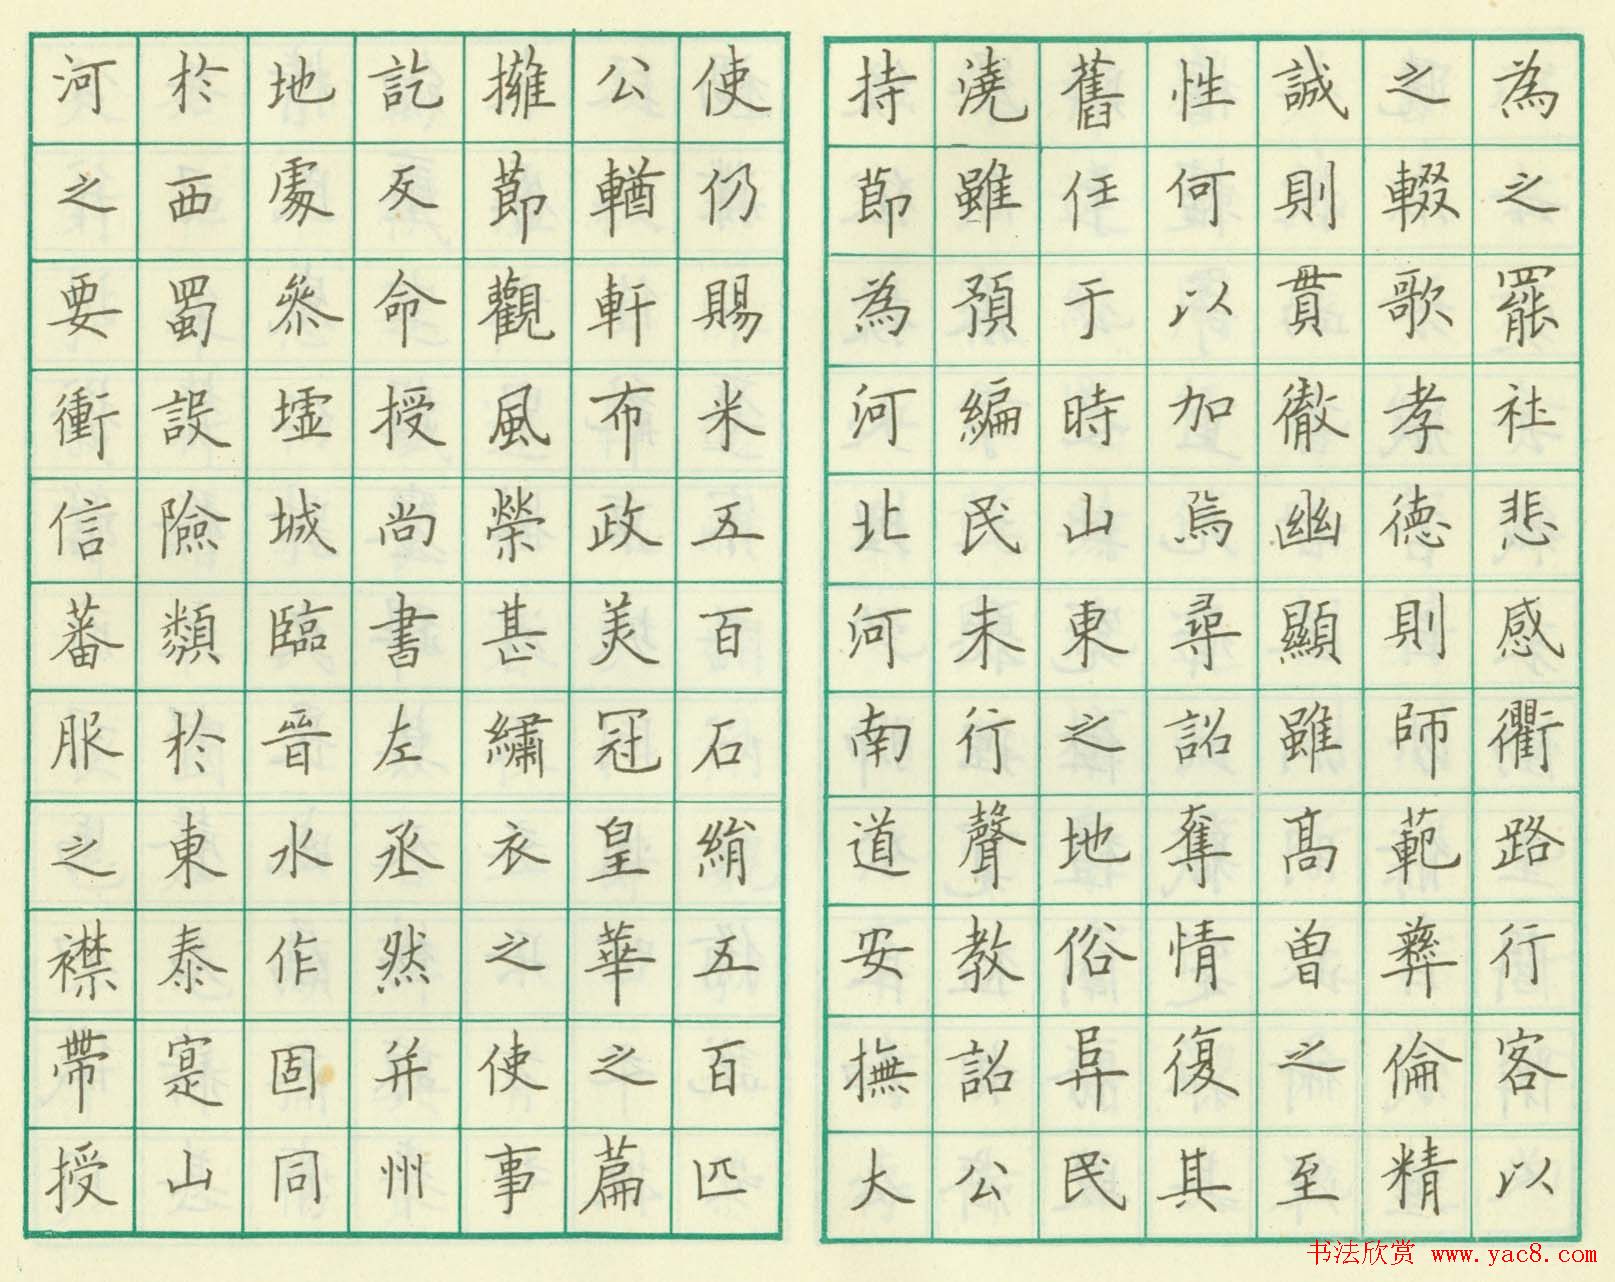 為之罷社悲感衢路行客以
之輟歌孝德則師範彝倫精
誠則貫徹幽顯雖高曾之至
性何以加焉尋詔奪情復其
舊任于時山東之地俗异民
澆雖預編民未行聲教詔公
持節為河北河南道安撫大
使仍賜米五百石絹五百匹
公輶軒布政美冠皇華之篇
擁節觀風榮甚繡衣之使事
訖反命授尚書左丞然并州
地處參墟城臨晉水作固同
於西蜀設險類於東泰寔山
河之要衝信蕃服之襟帶授
书法欣赏 www.yac8.com